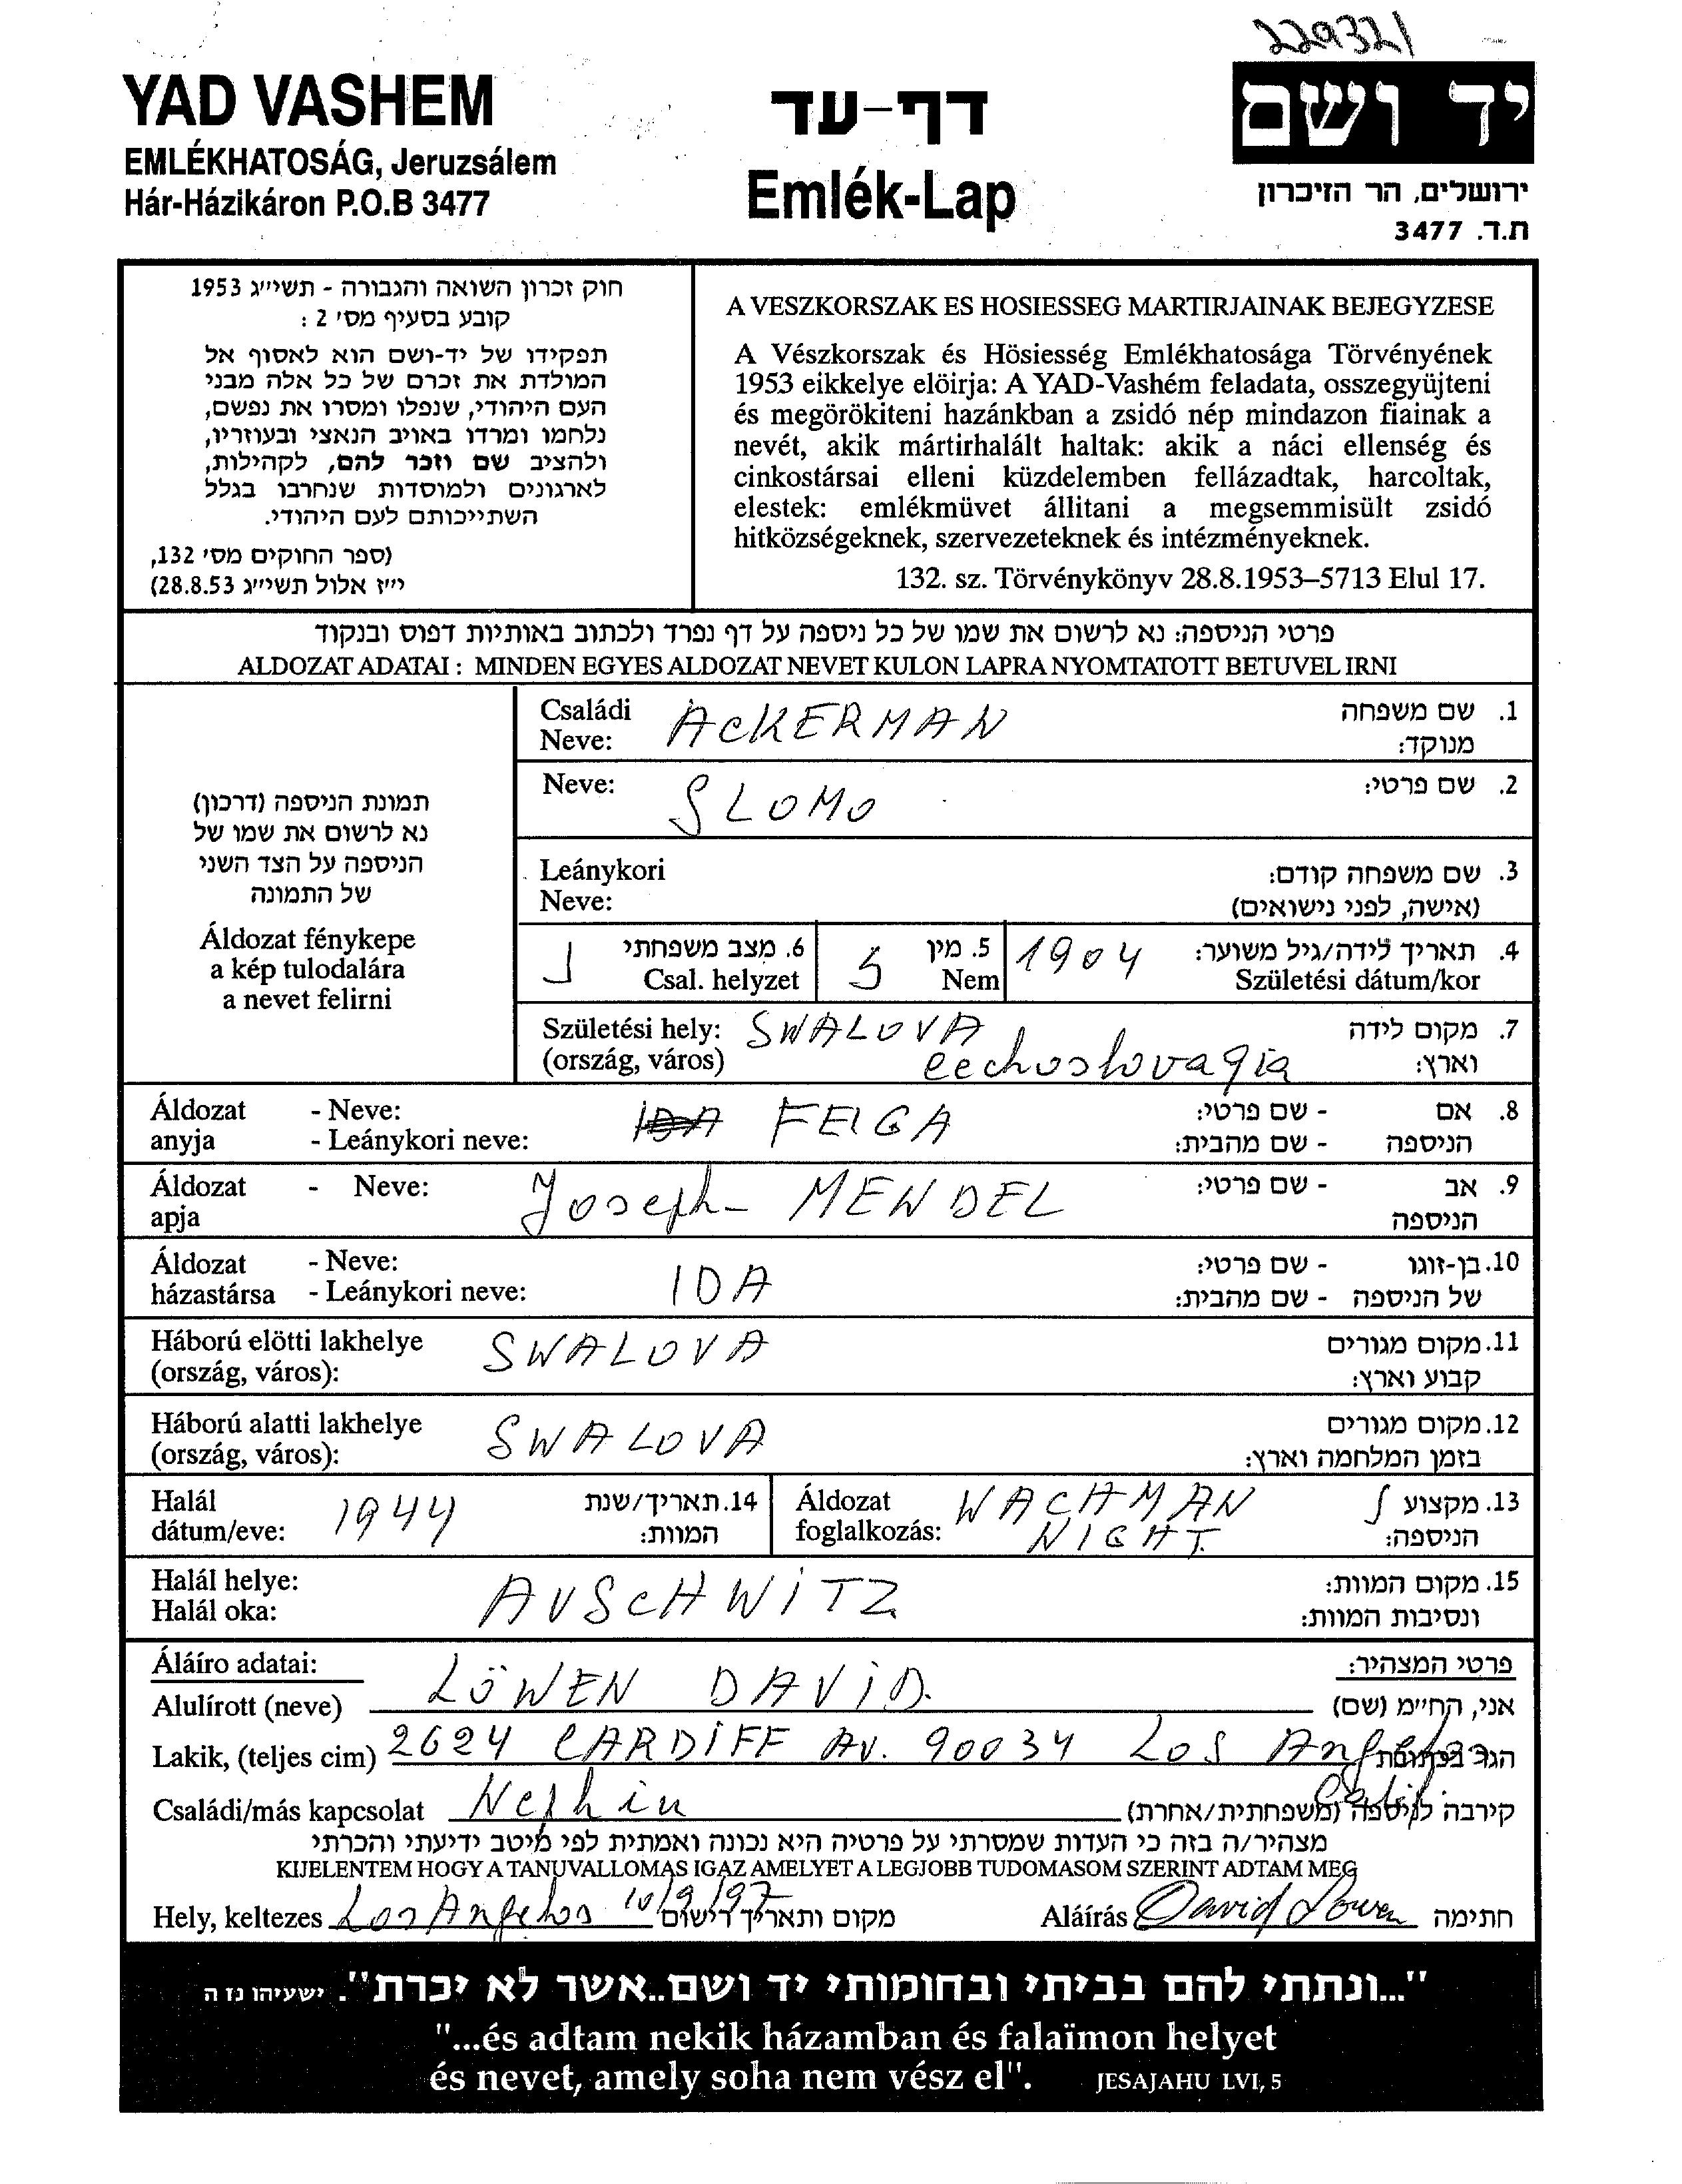 229321
YAD VASHEM
EMLÉKHATOSÁG, Jeruzsálem
Hár-Házikáron P.O.B 3477
דף-עד
Emlék-Lap
יד ושם
ירושלים, הר הזיכרון
ת.ד. 3477
חוק זכרון השואה והגבורה - תשי״ג 1953
קובע בסעיף מס׳ 2 :
תפקידו של יד-ושם הוא לאסוף אל
המולדת את זכרם של כל אלה מבני
העם היהודי, שנפלו ומסרו את נפשם,
נלחמו ומרדו באויב הנאצי ובעוזריו,
ולהציב שם וזכר להם, לקהילות,
לארגונים ולמוסדות שנחרבו בגלל
השתייכותם לעם היהודי.
(ספר החוקים מס׳ 132,
י״ז אלול תשי״ג 28.8.53)
A VESZKORSZAK ES HOSIESSEG MARTIRJAINAK BEJEGYZESE
A Vészkorszak és Hösiesség Emlékhatosága Törvényének
1953 eikkelye elöirja: A YAD-Vashém feladata, osszegyüjteni
és megörökiteni hazánkban a zsidó nép mindazon fiainak a
nevét, akik mártirhalált haltak: akik a náci ellenség és
cinkostársai elleni küzdelemben fellázadtak, harcoltak,
elestek: emlékmüvet állitani a megsemmisült zsidó
hitközségeknek, szervezeteknek és intézményeknek.
132. sz. Törvénykönyv 28.8.1953–5713 Elul 17.
פרטי הניספה: נא לרשום את שמו של כל ניספה על דף נפרד ולכתוב באותיות דפוס ובנקוד
ALDOZAT ADATAI : MINDEN EGYES ALDOZAT NEVET KULON LAPRA NYOMTATOTT BETUVEL IRNI
תמונת הניספה (דרכון)
נא לרשום את שמו של
הניספה על הצד השני
של התמונה
Áldozat fénykepe
a kép tulodalára
a nevet felirni
Családi ACKERMAN 1. שם משפחה
Neve: מנוקד:
Neve: SLOMO 2. שם פרטי:
Leánykori 3. שם משפחה קודם:
Neve: (אישה, לפני נישואים)
6. מצב משפחתי 5. מין 1904 4. תאריך לידה/גיל משוער:
Csal. helyzet Nem Születési dátum/kor
Születési hely: SWALOVA 7. מקום לידה
(ország, város) cechoslovaqia וארץ:
Áldozat - Neve: IDA FEIGA 8. אם - שם פרטי:
anyja - Leánykori neve: הניספה - שם מהבית:
Áldozat - Neve: Joseph- MENDEL 9. אב - שם פרטי:
apja הניספה
Áldozat - Neve: IDA 10. בן-זוגו - שם פרטי:
házastársa - Leánykori neve: של הניספה - שם מהבית:
Háború elötti lakhelye SWALOVA 11. מקום מגורים
(ország, város): קבוע וארץ:
Háború alatti lakhelye SWALOVA 12. מקום מגורים
(ország, város): בזמן המלחמה וארץ:
Halál 1944 14. תאריך/שנת Áldozat WACHMAN 13. מקצוע
dátum/eve: המוות: foglalkozás: NIGHT. הניספה:
Halál helye: AUSCHWITZ 15. מקום המוות:
Halál oka: ונסיבות המוות:
Áláíro adatai: פרטי המצהיר:
Alulírott (neve) LÖWEN DAVID. אני, החי״מ (שם)
Lakik, (teljes cim) 2624 CARDIFF AV. 90034 Los Angeles הגר בכתובת
Calif.
Családi/más kapcsolat Nephiu קירבה לניספה (משפחתית/אחרת)
מצהיר/ה בזה כי העדות שמסרתי על פרטיה היא נכונה ואמתית לפי מיטב ידיעתי והכרתי
KIJELENTEM HOGY A TANUVALLOMAS IGAZ AMELYET A LEGJOBB TUDOMASOM SZERINT ADTAM MEG
Hely, keltezes Los Angelos 10/9/97 מקום ותאריך רישום Aláírás David Lowen חתימה
"...ונתתי להם בביתי ובחומותי יד ושם..אשר לא יכרת". ישעיהו נז ה
"...és adtam nekik házamban és falaïmon helyet
és nevet, amely soha nem vész el". JESAJAHU LVI, 5